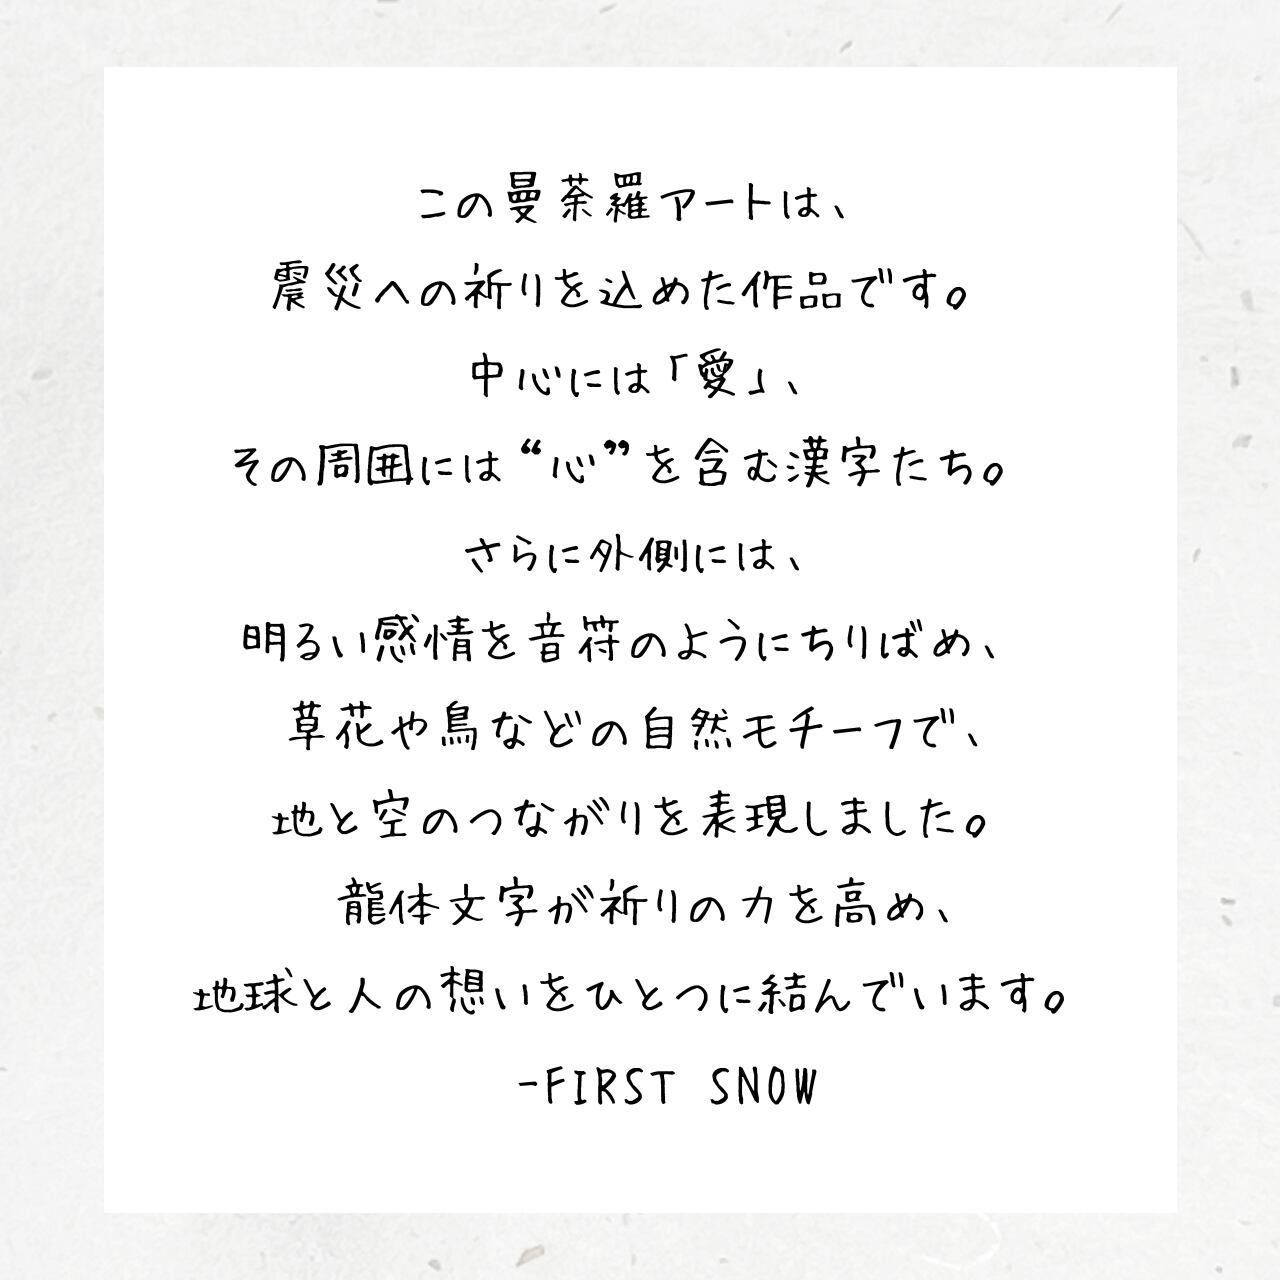 この曼荼羅アートは、
震災への祈りを込めた作品です。
中心には「愛」、
その周囲には“心”を含む漢字たち。
さらに外側には、
明るい感情を音符のようにちりばめ、
草花や鳥などの自然モチーフで、
地と空のつながりを表現しました。
龍体文字が祈りの力を高め、
地球と人の想いをひとつに結んでいます。
-FIRST SNOW